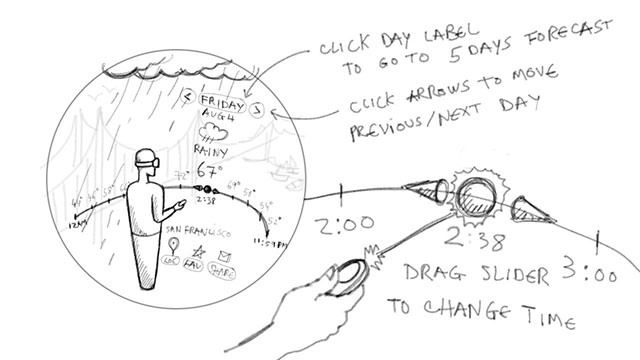 CLICK DAY LABEL
TO GO TO 5 DAYS FORECAST
CLICK ARROWS TO MOVE
PREVIOUS/NEXT DAY
< FRIDAY >
AUG 4
RAINY
67°
72°
67°
59°
55°
52°
58°
12AM
2:38
11:59PM
SAN FRANCISCO
LOC
FAV
2:00
2:38
3:00
DRAG SLIDER
TO CHANGE TIME